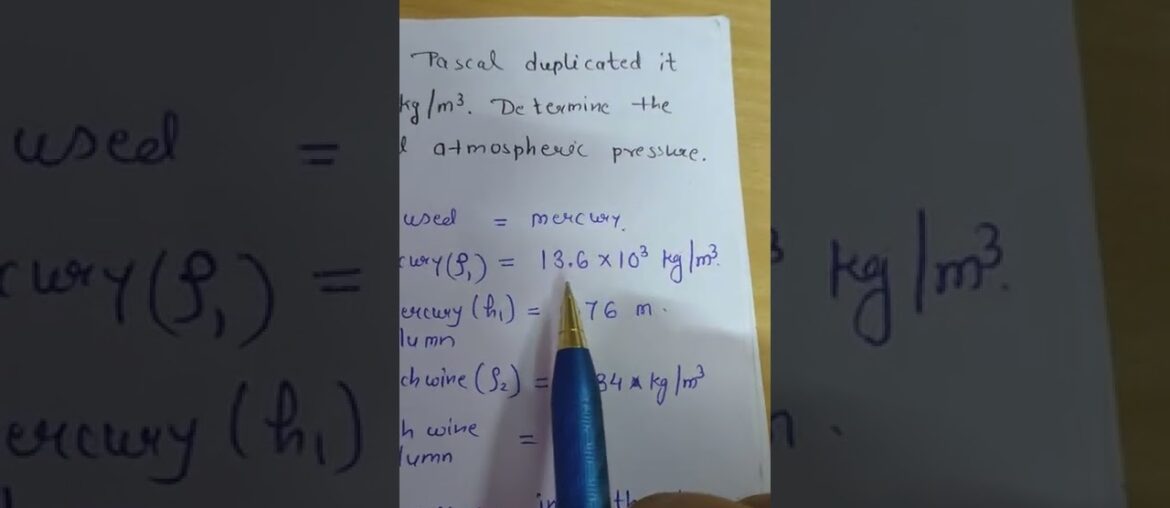 Pascal duplicated it
kg/m³. Determine the
l atmospheric pressure.
used = mercury.
cury (ρ₁) = 13.6 × 10³ kg/m³.
ercury (h₁) = 76 m.
lumn
ch wine (ρ₂) = 84 kg/m³
h wine =
lumn
in th